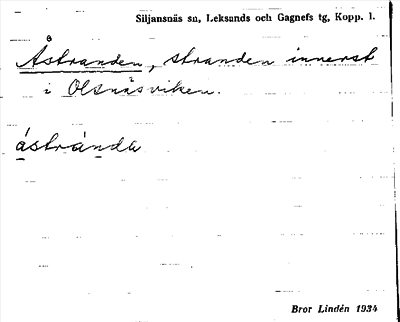 Siljansnäs sn, Leksands och Gagnefs tg, Kopp. l.
Åstranden, stranden innerst
i Olsnäsviken.
ástránda
Bror Lindén 1934